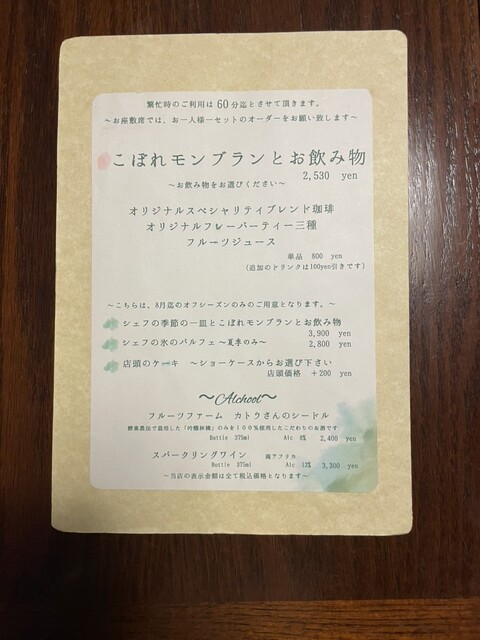 繁忙時のご利用は60分迄とさせて頂きます。
～お座敷席では、お一人様一セットのオーダーをお願い致します～
こぼれモンブランとお飲み物
2,530 yen
～お飲み物をお選びください～
オリジナルスペシャリティブレンド珈琲
オリジナルフレーバーティー三種
フルーツジュース
単品 800 yen
(追加のドリンクは100yen引きです)
～こちらは、8月迄のオフシーズンのみのご用意となります。～
シェフの季節の一皿とこぼれモンブランとお飲み物
3,900 yen
シェフの氷のパルフェ ～夏季のみ～ 2,800 yen
店頭のケーキ ～ショーケースからお選び下さい
店頭価格 +200 yen
～Alchool～
フルーツファーム カトラさんのシードル
酵素農法で栽培した「吟醸林檎」のみを100％使用したこだわりのお酒です
Buttle 375ml Alc 8% 2,400 yen
スパークリングワイン 南アフリカ
Buttle 375ml Alc 12% 3,300 yen
～当店の表示金額は全て税込価格となります～